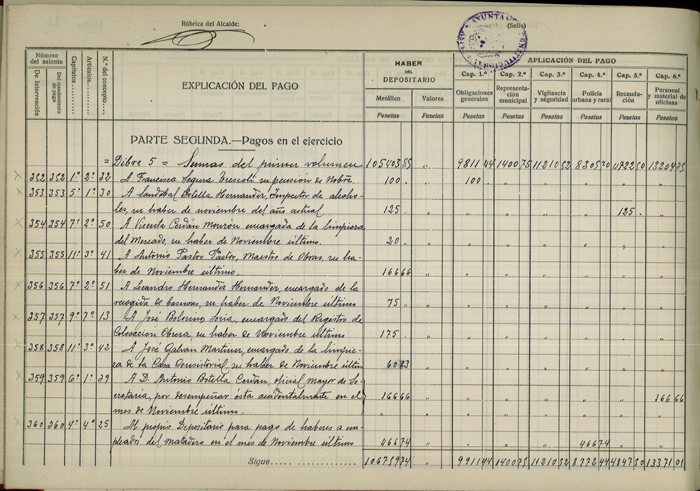 Rúbrica del Alcalde:
(Sello)
Número del asiento
De intervención
Del mandamiento de pago
Capítulos
Artículos
N.º del concepto
EXPLICACIÓN DEL PAGO
HABER
DEL
DEPOSITARIO
Metálico
Valores
Pesetas
Pesetas
APLICACIÓN DEL PAGO
Cap. 1.º
Cap. 2.º
Cap. 3.º
Cap. 4.º
Cap. 5.º
Cap. 6.º
Obligaciones generales
Representación municipal
Vigilancia y seguridad
Policía urbana y rural
Recaudación
Personal y material de oficinas
Pesetas
Pesetas
Pesetas
Pesetas
Pesetas
Pesetas
PARTE SEGUNDA.—Pagos en el ejercicio
= Dibre 5 = Sumas del primer volumen 1054035 55 " 9811 44 1400 75 11210 52 8305 70 4722 50 13204 35
352 352 1º 2º 32 A Francisca Segura su pensión de Nobre. 100 " 100
353 353 5º 1º 30 A Sandobal Botella Hernandez, Inspector de alcoholes, su haber de noviembre del año actual 125 " 125
354 354 7º 2º 50 A Vicenta Cerdán encargada de la limpieza
del Mercado, su haber de Noviembre último 20
355 355 11º 3º 41 A Antonio Pastor Pastor, Maestro de Obras, su haber de Noviembre último. 166 66
356 356 7º 2º 51 A Leandro Hernandez Hernandez, encargado de la
recogida de basuras, su haber de Noviembre último 75
357 357 9º 7º 13 A José Soria, encargado del Registro de
Colocación Obrera, su haber de Noviembre último 175
358 358 11º 3º 42 A José Galvan Martinez, encargado de la limpieza de la Casa Consistorial, su haber de Noviembre últim 60 83
359 359 6º 1º 39 A D. Antonio Botella Cerdán, oficial Mayor de Secretaria, por desempeñar ésta accidentalmente en el
mes de Noviembre último. 166 66 " 166 66
360 360 4º 4º 25 Al propio Depositario para pago de haberes a empleados del matadero en el mes de Noviembre último 466 74 " 466 74
Sigue 1067597 4 " 9911 44 1400 75 11210 52 8772 44 4847 50 13371 01